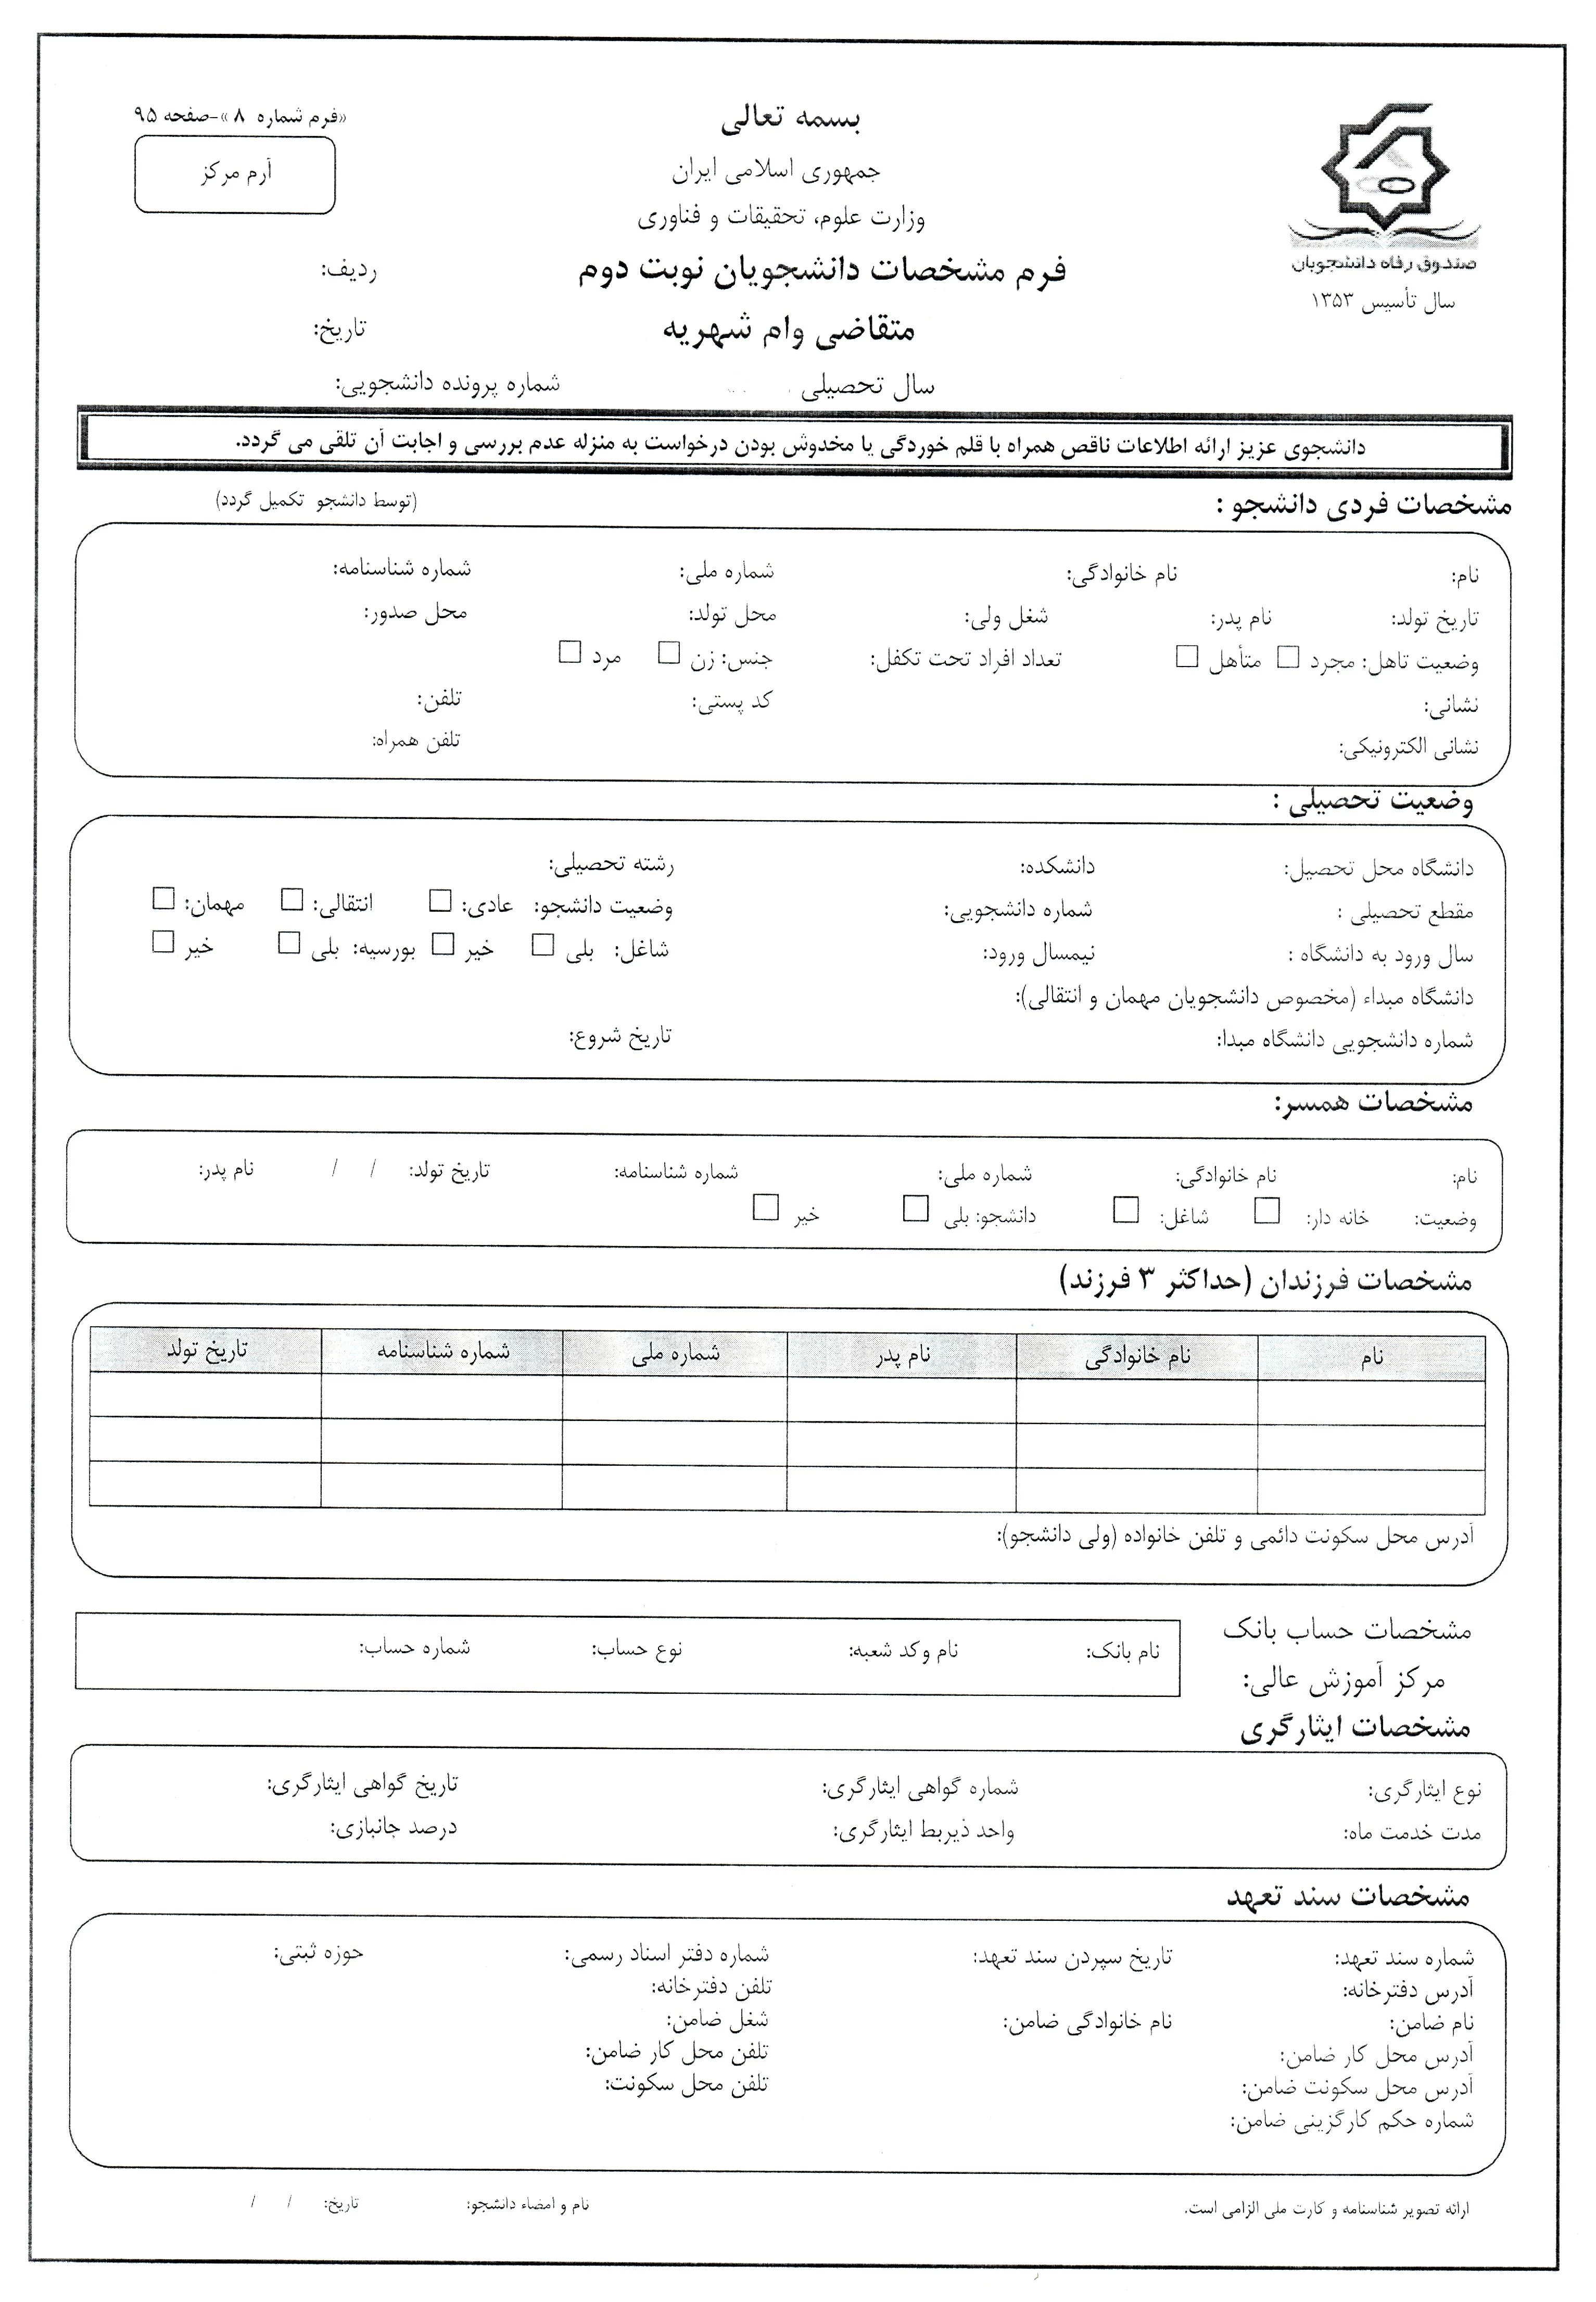 «فرم شماره ۸»-صفحه ۹۵
آرم مرکز
بسمه تعالی
جمهوری اسلامی ایران
وزارت علوم، تحقیقات و فناوری
فرم مشخصات دانشجویان نوبت دوم
متقاضی وام شهریه
سال تحصیلی
صندوق رفاه دانشجویان
سال تأسیس ۱۳۵۳
ردیف:
تاریخ:
شماره پرونده دانشجویی:
دانشجوی عزیز ارائه اطلاعات ناقص همراه با قلم خوردگی یا مخدوش بودن درخواست به منزله عدم بررسی و اجابت آن تلقی می گردد.
مشخصات فردی دانشجو : (توسط دانشجو تکمیل گردد)
نام: نام خانوادگی: شماره ملی: شماره شناسنامه:
تاریخ تولد: نام پدر: شغل ولی: محل تولد: محل صدور:
وضعیت تاهل: مجرد □ متأهل □ تعداد افراد تحت تکفل: جنس: زن □ مرد □
نشانی: کد پستی: تلفن:
نشانی الکترونیکی: تلفن همراه:
وضعیت تحصیلی :
دانشگاه محل تحصیل: دانشکده: رشته تحصیلی:
مقطع تحصیلی : شماره دانشجویی: وضعیت دانشجو: عادی: □ انتقالی: □ مهمان: □
سال ورود به دانشگاه : نیمسال ورود: شاغل: بلی □ خیر □ بورسیه: بلی □ خیر □
دانشگاه مبداء (مخصوص دانشجویان مهمان و انتقالی):
شماره دانشجویی دانشگاه مبدا: تاریخ شروع:
مشخصات همسر:
نام: نام خانوادگی: شماره ملی: شماره شناسنامه: تاریخ تولد: / / نام پدر:
وضعیت: خانه دار: □ شاغل: □ دانشجو: بلی □ خیر □
مشخصات فرزندان (حداکثر ۳ فرزند)
نام نام خانوادگی نام پدر شماره ملی شماره شناسنامه تاریخ تولد
آدرس محل سکونت دائمی و تلفن خانواده (ولی دانشجو):
مشخصات حساب بانک
مرکز آموزش عالی:
نام بانک: نام وکد شعبه: نوع حساب: شماره حساب:
مشخصات ایثارگری
نوع ایثارگری: شماره گواهی ایثارگری: تاریخ گواهی ایثارگری:
مدت خدمت ماه: واحد ذیربط ایثارگری: درصد جانبازی:
مشخصات سند تعهد
شماره سند تعهد: تاریخ سپردن سند تعهد: شماره دفتر اسناد رسمی: حوزه ثبتی:
آدرس دفترخانه: تلفن دفترخانه:
نام ضامن: نام خانوادگی ضامن: شغل ضامن:
آدرس محل کار ضامن: تلفن محل کار ضامن:
آدرس محل سکونت ضامن: تلفن محل سکونت:
شماره حکم کارگزینی ضامن:
ارائه تصویر شناسنامه و کارت ملی الزامی است. نام و امضاء دانشجو: تاریخ: / /